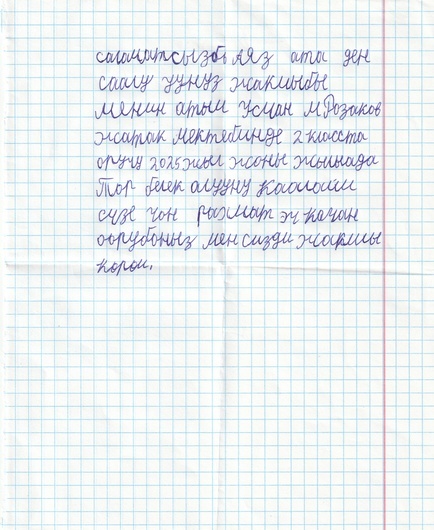 саламатсызбы Аяз ата ден
саалу уунуз жакшыбы
менин атым Усман М Розаков
жатак мектебинде 2 класста
окууу 2025 жыл жоны жылнада
Тор белек алууну каалаим
сизе чон рахмат эч качан
оорубоныз мен сизди жакшы
корои.